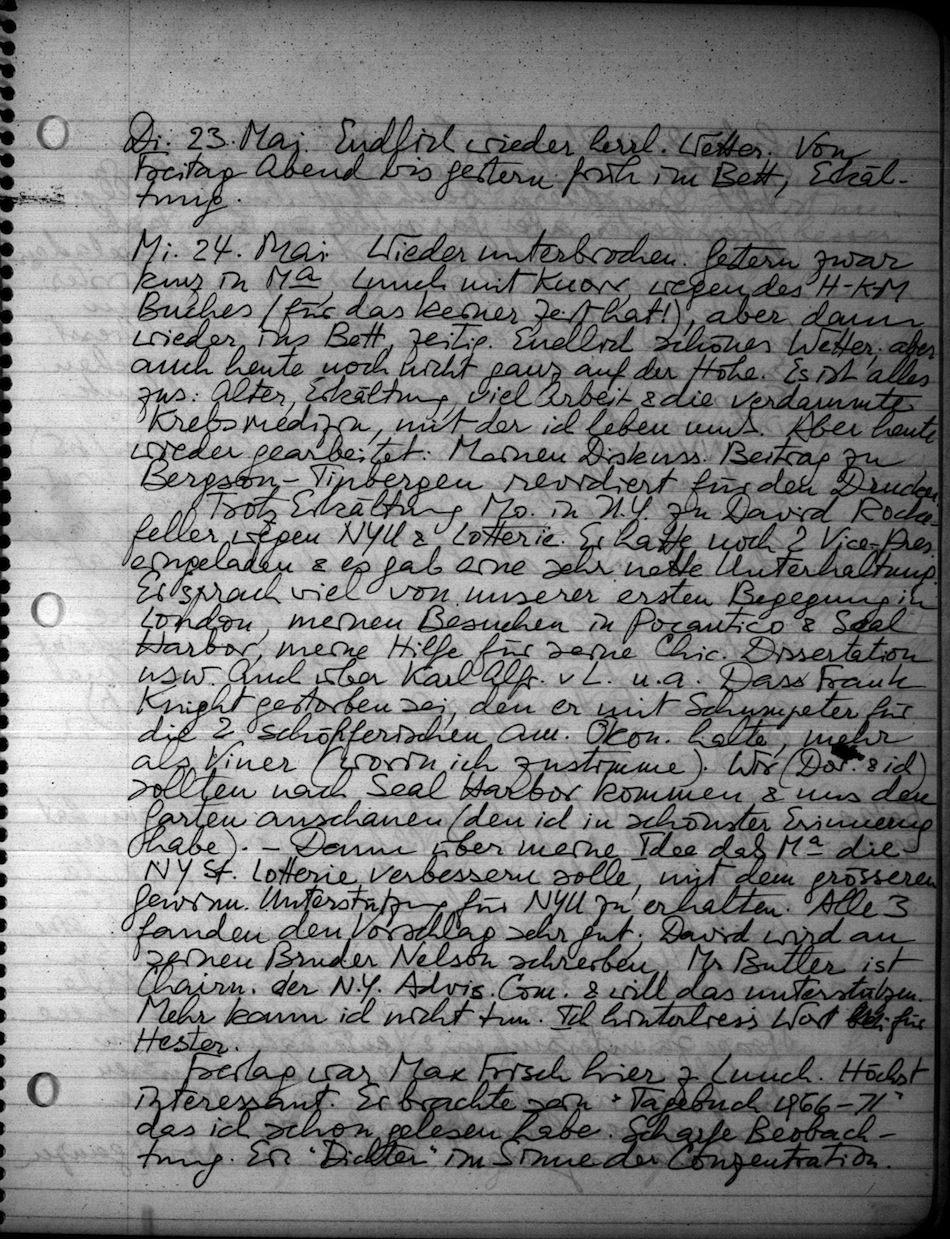 Di. 23. Mai. Endlich wieder herrl. Wetter. Von
Freitag Abend bis gestern früh im Bett, Erkäl-
tung.
Mi. 24. Mai Wieder unterbrochen. Gestern zwar
kurz in Ma, Lunch mit Knorr, wegen des H-K-M
Buches (für das keiner Zeit hat!), aber dann
wieder ins Bett, zeitig. Endlich schönes Wetter. aber
auch heute noch nicht ganz auf der Höhe. Es ist alles
zus: Alter, Erkältung, viel Arbeit & die verdammte
Krebsmedizin, mit der ich leben muss. Aber heute
wieder gearbeitet: Meinen Diskuss. Beitrag zu
Bergson-Tinbergen revidiert für den Druck.
Trotz Erkältung Mo. in N.Y. zu David Rocke-
feller wegen NYU & Lotterie. Er hatte noch 2 Vice-Pres.
eingeladen & es gab eine sehr nette Unterhaltung.
Er sprach viel von unserer ersten Begegnung in
London, meinen Besuchen in Pocantico & Seal
Harbor, meine Hilfe für seine Chic. Dissertation
usw. Auch über Karl Alfr. v L. u.a. Dass Frank
Knight gestorben sei, den er mit Schumpeter für
die 2 schöpferischen Am. Ökon. halte, mehr
als Viner (worin ich zustimme). Wir (Dor. & ich)
sollten nach Seal Harbor kommen & uns den
Garten anschauen (den ich in schönster Erinnerung
habe). – Dann über meine Idee das Ma die
NY St. Lotterie verbessern solle, mit dem grösseren
Gewinn. Unterstützung für NYU zu erhalten. Alle 3
fanden den Vorschlag sehr gut; David wird an
seinen Bruder Nelson schreiben, Mr Butler ist
Chairm. der N.Y. Advis. Com. & will das unterstützen.
Mehr kann ich nicht tun. Ich hinterliess Wort für
Hester.
Freitag war Max Frisch hier z. Lunch. Höchst
interessant. Er brachte sein "Tagebuch 1966–71"
das ich schon gelesen habe. Scharfe Beobach-
tung. Ein "Dichter" im Sinne der Conzentration.